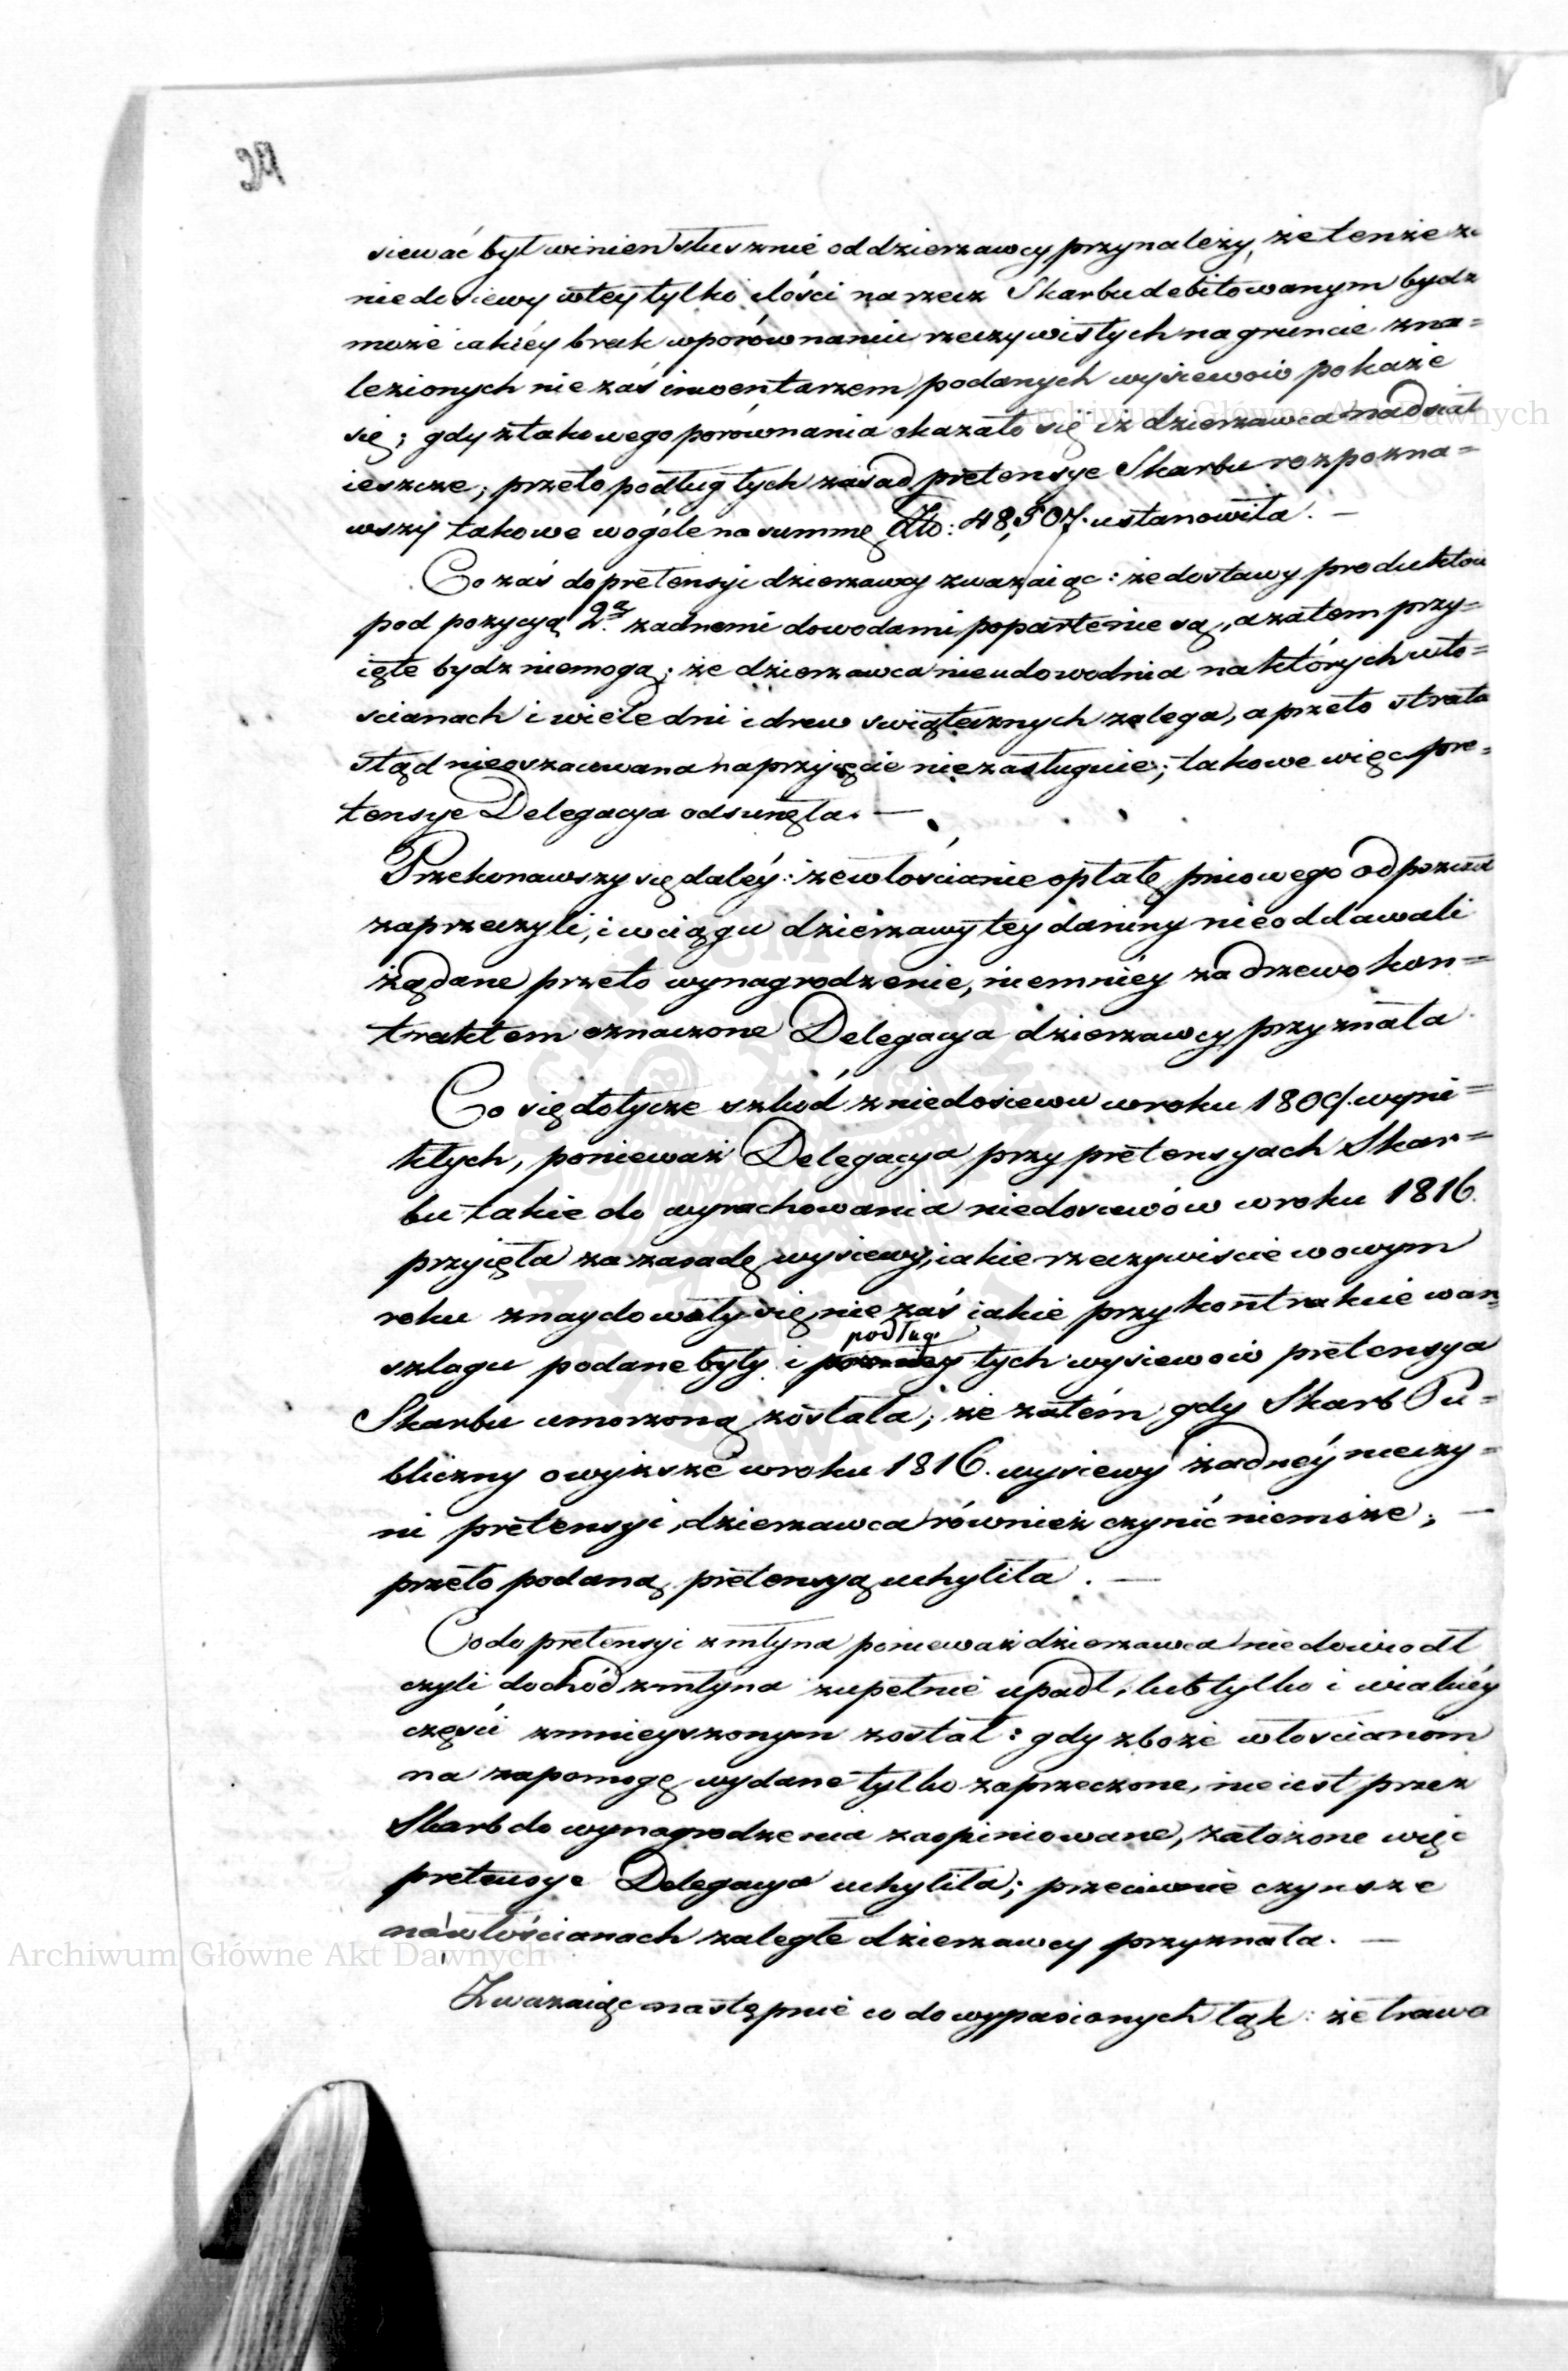 siewać był winien słusznie od dzierzawcy przynależy, że tenże za
niedosiewy w tey tylko ilości na rzecz Skarbu debitowanym bydz
może iakiéy brak w porównaniu rzeczywistych na gruncie zna=
lezionych nie zaś inwentarzem podanych wysiewów pokaże
się; gdy z takowego porównania okazało się iz dzierzawca nadsiał
ieszcze; przeto podług tych zasad pretensye Skarbu rozpozna=
wszy takowe w ogóle na summę Złp: 48,507. ustanowiła. —
Co zaś do pretensyi dzierzawcy zwazaiąc: że dostawy produktów
pod pozycyą 2ą. zadnemi dowodami poparte nie są, a zatem przy=
ięte bydz niemogą; że dzierzawca nieudowodnia na których wło=
scianach i wiele dni i drew swiątecznych zalega, a przeto strata
ztąd nieoszacowana na przyięcie niezasługuie; takowe więc pre=
tensye Delegacya odsunęła. —
Przekonawszy się daléy: że włościanie opłatę pniowego od
zaprzeczyli, i w ciągu dzierzawy tey daniny nieoddawali
żądane przeto wynagrodzenie, niemniéy za drzewo kon=
traktem oznaczone Delegacya dzierzawcy przyznała
Co się dotycze szkód z niedosiewu w roku 1809. wyni=
kłych, ponieważ Delegacya przy pretensyach Skar=
bu takie do wyrachowania niedosiewów w roku 1816.
przyięła za zasadę wysiewy, iakie rzeczywiscie w owym
roku znaydowały się, nie zaś iakie przy kontrakcie wan=
szlagu podane były i podług tych wysiewów pretensya
Skarbu umorzoną została; że zatém gdy Skarb Pu=
bliczny o wyzsze w roku 1816. wysiewy żadnéy nieczy=
ni pretensyi, dzierzawca również czynić niemoze; —
przeto podaną pretensyą uchyliła. —
Co do pretensyi z młyna ponieważ dzierzawca niedowiodł
czyli dochód z młyna zupełnie upadł, lub tylko i w iakiéy
części zmnieyszonym został: gdy zboże włoscianom
na zapomogę wydane tylko zaprzeczone, nie iest przez
Skarb do wynagrodzenia zaopiniowane, założone więc
pretensye Delegacya uchyliła; przeciwnie czynsze
na włościanach zaległe dzierzawcy przyznała. —
Zwazaiąc następnie co do wypasionych łąk: że trawa
Archiwum Główne Akt Dawnych
Archiwum Główne Akt Dawnych